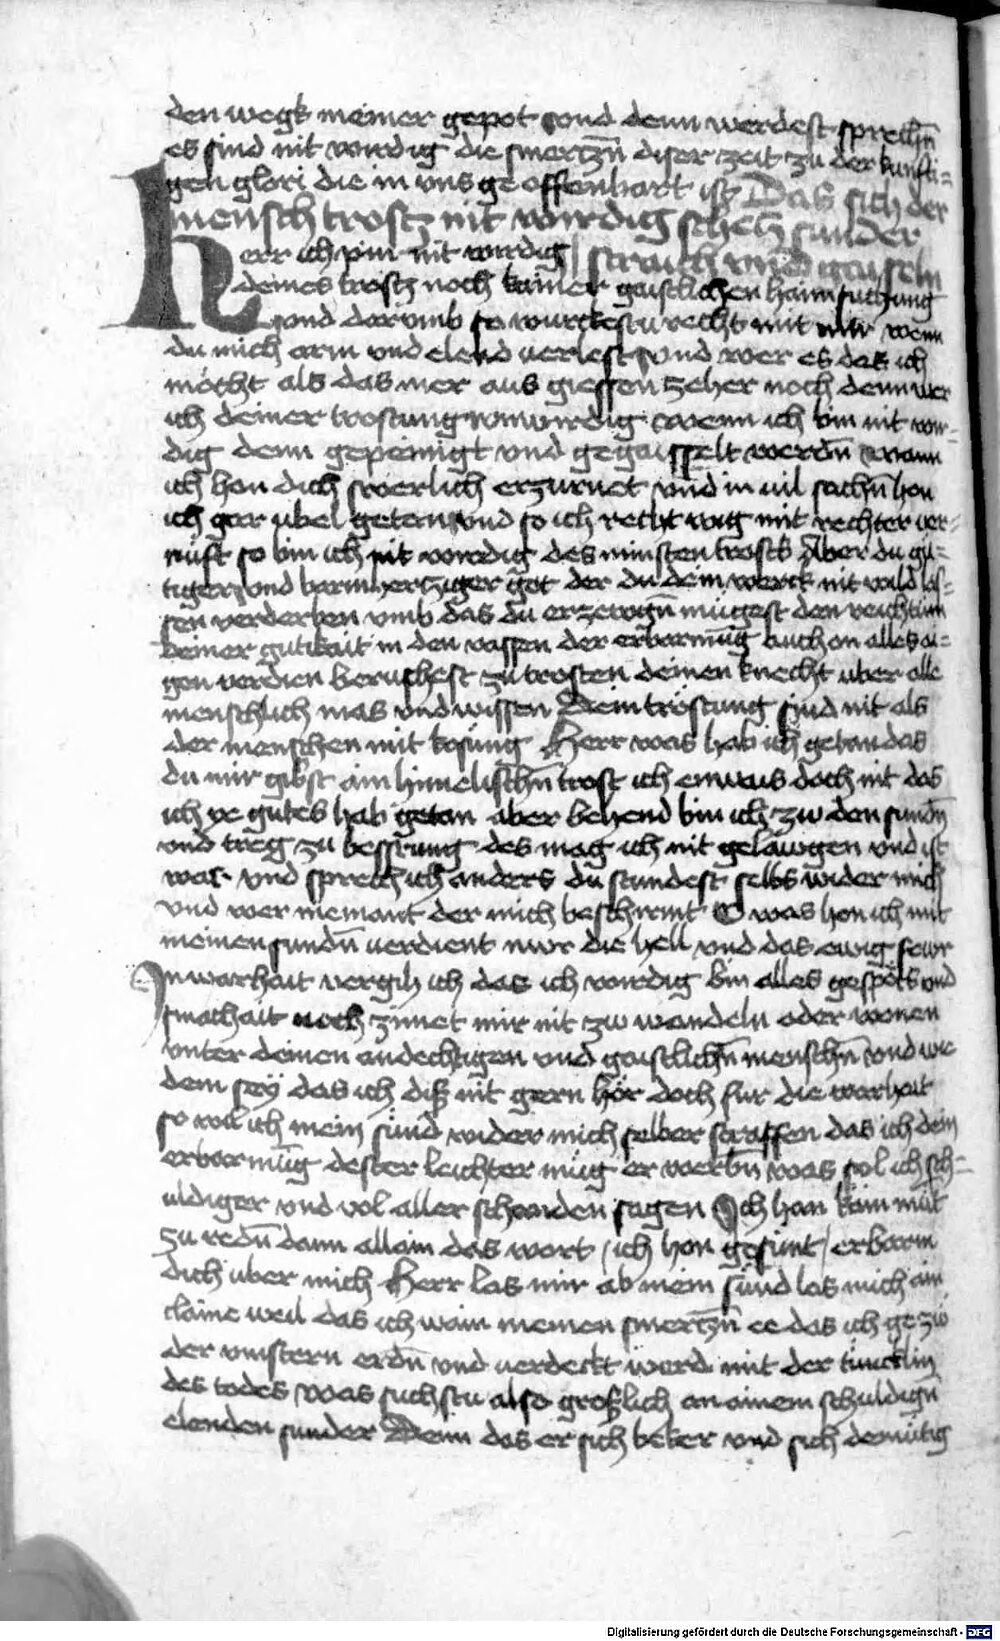 den wegk meiner gepot vnd denn werdest sprechn̄
es sind nit wirdig die smertzn̄ diser zeit zu der kunfti=
gen glori die in vns geoffenbart ist Das sich der
mensch trostz nit wirdig schetz sunder
Herr ich pin nit wirdig straich vnd gaiseln
deines trostz noch kainer gaistlichen haimsuchung
vnd darvmb so wurckestu recht mit mir wenn
du mich arm vnd elend verlest vnd wer es das ich
möcht als das mer aus giessen zeher noch denn wer
ich deiner trostung vnwirdig wenn ich bin nit wir=
dig denn gepeinigt vnd gegaisselt werdn̄ wann
ich hon dich swerlich erzurnet vnd in uil sachn̄ hon
ich gar ubel geton vnd so ich recht wig mit rechter ver=
nuft so bin ich nit wirdig des minsten trosts Aber du gu=
tiger vnd barmhertziger got der du dein werck nit wild las=
sen verderben vmb das du erzewgn̄ mügest den reichtum
deiner gutikait in den vassen der erbarmūg auch on alles ai=
gen verdien beruchest zu trosten deinen knecht uber alle
menschlich mas vnd wissen Dein tröstung sind nit als
der menschen mit kosung Herr was hab ich getan das
du mir gibst ain himelischn̄ trost ich enwais doch nit das
ich ye gutes hab getan aber behend bin ich zw den sundn̄
vnd treg zu bessrung des mag ich nit gelawgen vnd ist
war vnd sprech ich anders du stundest selbs wider mich
vnd wer niemant der mich beschirmt O was hon ich mit
meinen sundn̄ verdient nwr die hell vnd das ewig fewr
In warhait vergih ich das ich wirdig bin alles gespöts vnd
smachait noch zimet mir nit zw wandeln oder wonen
vnter deinen andechtigen vnd gaistlichn̄ menschn̄ vnd wie
dem sey das ich diß nit gern hör doch fur die warhait
so wil ich mein sünd wider mich selber straffen das ich dein
erbarmūg dester leichter müg erwerbn̄ was sol ich sch=
uldiger vnd vol aller schanden sagen Ich han kain mut
zu redn̄ dann allain das wort / ich hon gesünt / erbarm
dich uber mich Herr las mir ab mein sünd las mich ain
claine weil das ich wain meinen smertzn̄ ee das ich ge zw
der vinstern erdn̄ vnd verdeckt werd mit der tunckliñ
des todes was suchstu also großlich an ainem schuldign̄
elenden sunder Denn das er sich beker vnd sich demütig